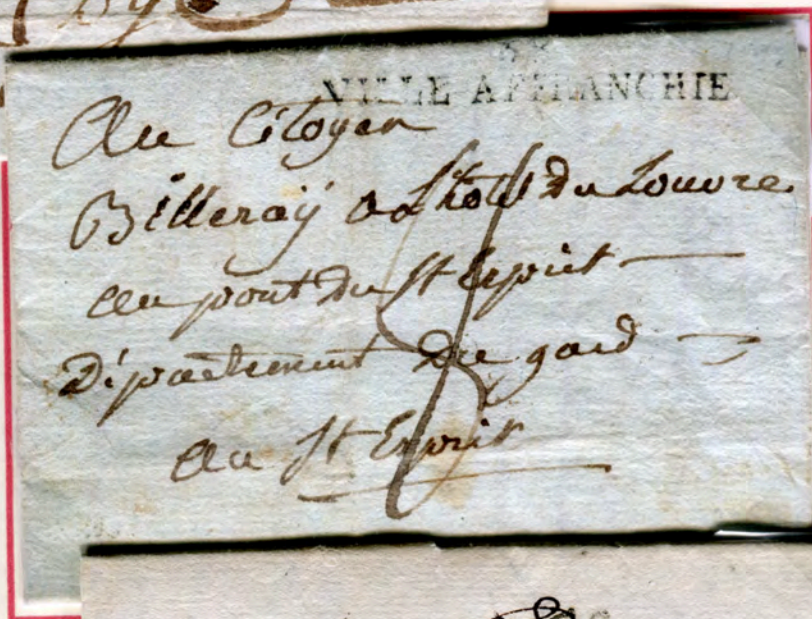 68
VILLE AFFRANCHIE
Au Citoyen
Billeraÿ a Lhotel du Louvre
au pont du St Esprit
Département du gard
au St Esprit